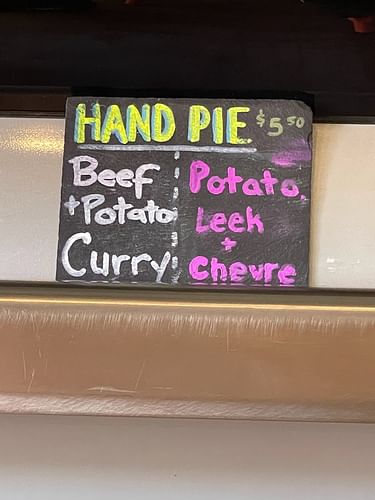 HAND PIE $5.50
Beef
+Potato
Curry
Potato,
Leek
+
Chevre